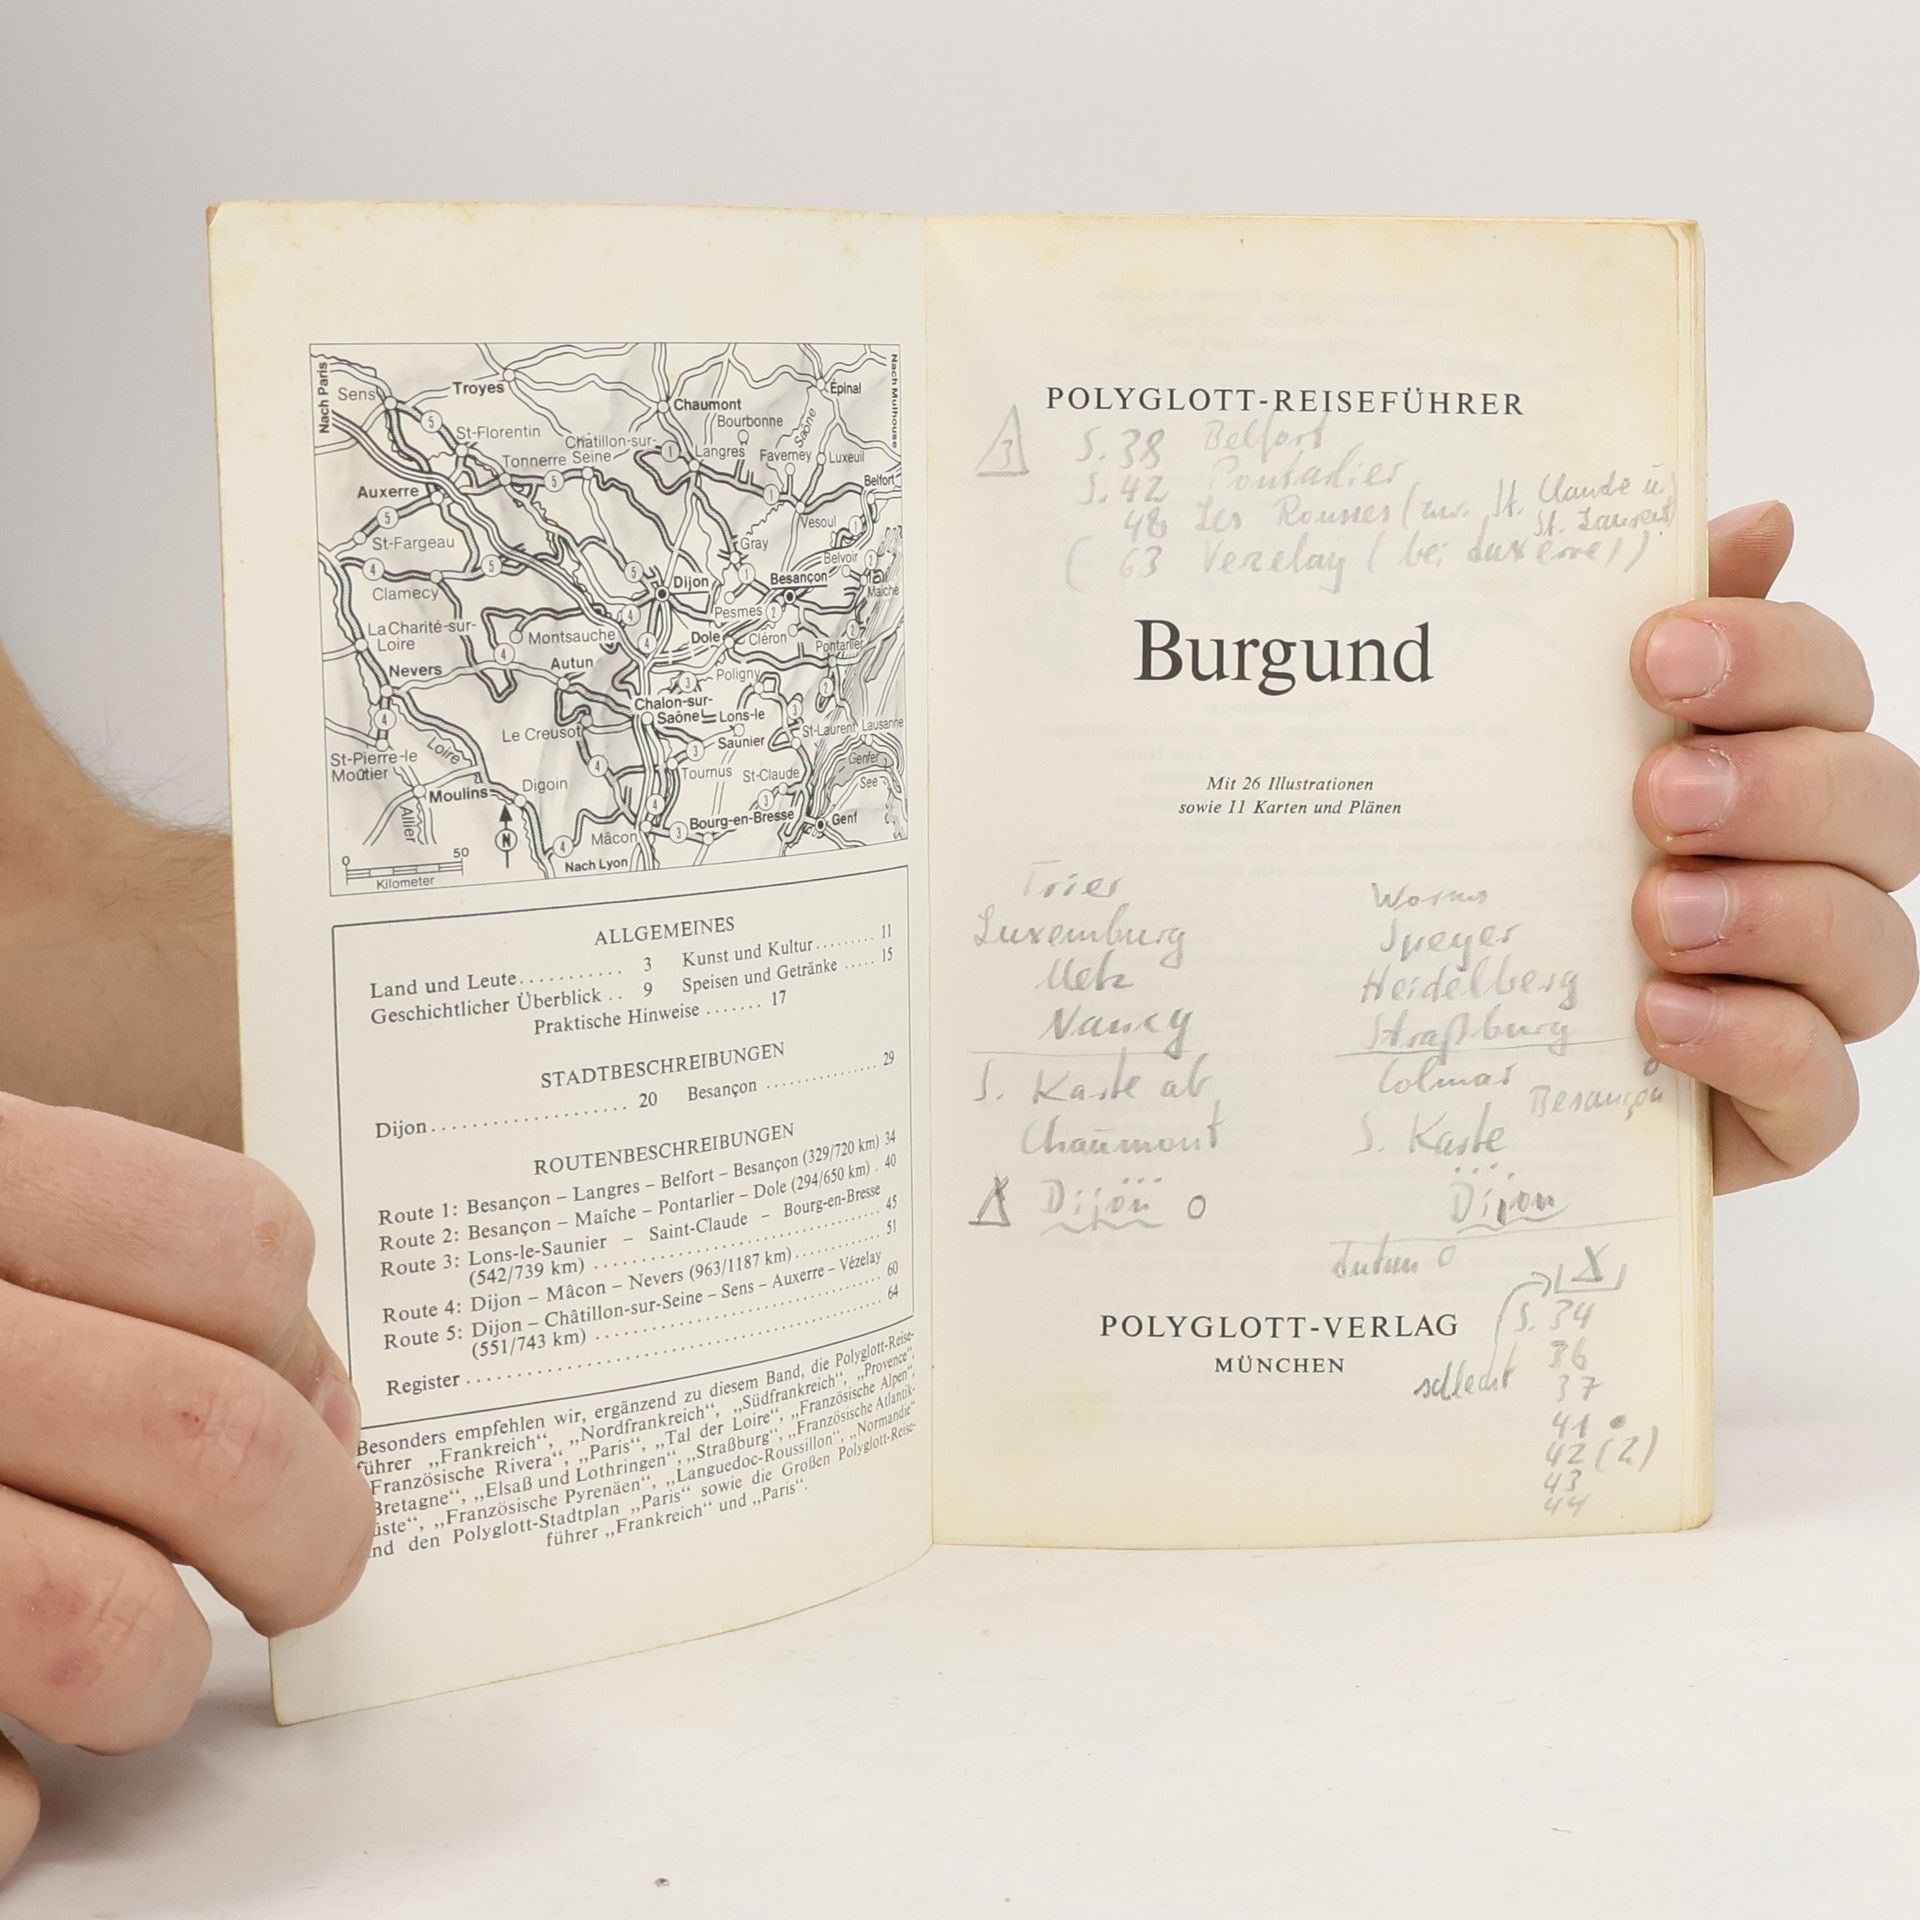 Nach Paris
Nach Mulhouse
Sens
Troyes
Épinal
Chaumont
Bourbonne
St-Florentin
Châtillon-sur-
Seine
Langres
Saône
Faverney
Luxeuil
Tonnerre
Belfort
Auxerre
Vesoul
St-Fargeau
Gray
Belvoir
Clamecy
Dijon
Besançon
Maîche
Pesmes
La Charité-sur-
Loire
Montsauche
Dole
Cléron
Pontarlier
Nevers
Autun
Poligny
Chalon-sur-
Saône
Lons-le-
Saunier
St-Laurent
Lausanne
Le Creusot
St-Pierre-le
Moûtier
Loire
Tournus
St-Claude
Genfer
See
Moulins
Digoin
Allier
N
Bourg-en-Bresse
Genf
Mâcon
Nach Lyon
0 50
Kilometer
ALLGEMEINES
Land und Leute........... 3 Kunst und Kultur......... 11
Geschichtlicher Überblick .. 9 Speisen und Getränke ..... 15
Praktische Hinweise ....... 17
STADTBESCHREIBUNGEN
Dijon....................... 20 Besançon ................ 29
ROUTENBESCHREIBUNGEN
Route 1: Besançon – Langres – Belfort – Besançon (329/720 km) 34
Route 2: Besançon – Maîche – Pontarlier – Dole (294/650 km) . 40
Route 3: Lons-le-Saunier – Saint-Claude – Bourg-en-Bresse
(542/739 km) ................................. 45
Route 4: Dijon – Mâcon – Nevers (963/1187 km)............ 51
Route 5: Dijon – Châtillon-sur-Seine – Sens – Auxerre – Vézelay
(551/743 km) ................................. 60
Register .............................................. 64
Besonders empfehlen wir, ergänzend zu diesem Band, die Polyglott-Reise-
führer „Frankreich“, „Nordfrankreich“, „Südfrankreich“, „Provence“,
„Französische Riviera“, „Paris“, „Tal der Loire“, „Französische Alpen“,
„Bretagne“, „Elsaß und Lothringen“, „Straßburg“, „Französische Atlantik-
küste“, „Französische Pyrenäen“, „Languedoc-Roussillon“, „Normandie“
und den Polyglott-Stadtplan „Paris“ sowie die Großen Polyglott-Reise-
führer „Frankreich“ und „Paris“.
POLYGLOTT-REISEFÜHRER
3 S. 38 Belfort
S. 42 Pontarlier
48 Les Rousses (zw. St. Claude u
St. Laurent)
( 63 Vezelay (bei Auxerre))
Burgund
Mit 26 Illustrationen
sowie 11 Karten und Plänen
Trier
Luxemburg
Metz
Nancy
S. Karte ab
Chaumont
Dijon 0
Worms
Speyer
Heidelberg
Straßburg
Colmar
Besançon
S. Karte
Dijon
Autun 0
POLYGLOTT-VERLAG
MÜNCHEN
schlecht
S. 34
36
37
41
42 (2)
43
44